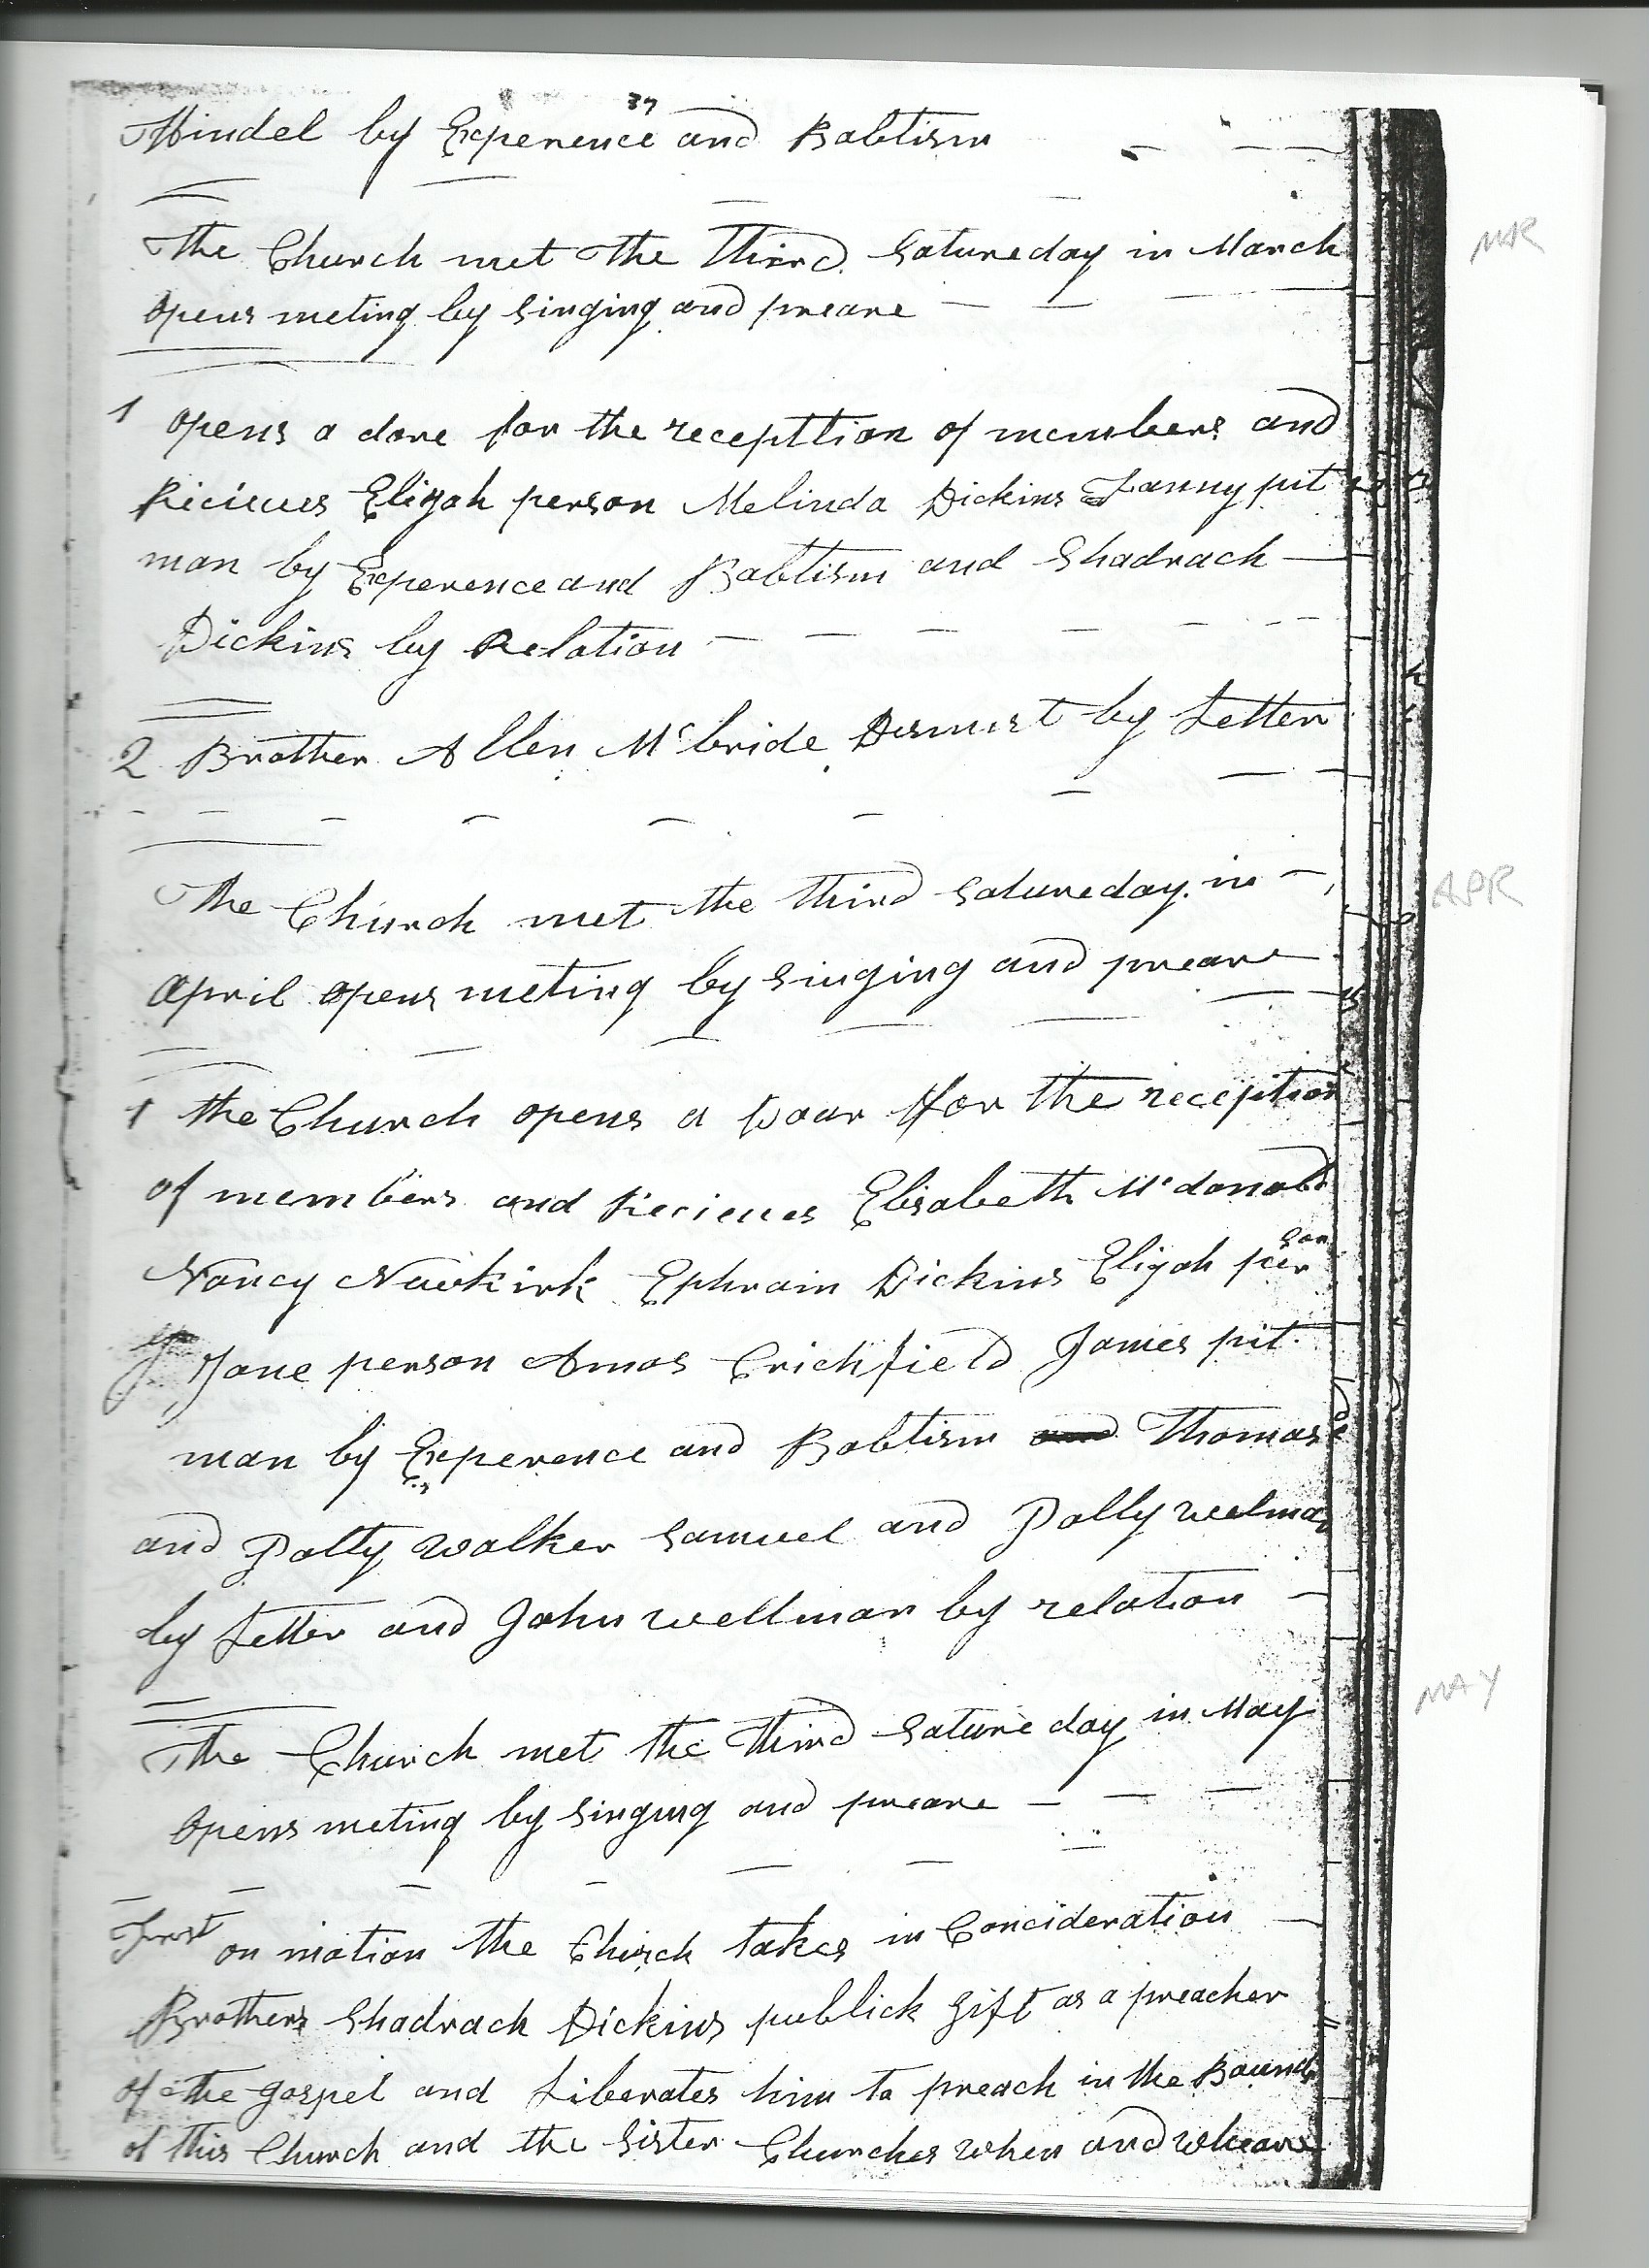 37
Hindel by Experence and Babtism
The Church met the Third Satureday in March
MR
opens meting by singing and preare
1 opens a dore for the recepttion of members and
Recieves Elijah person Melinda Dickins Fanny pit
man by Experence and Babtism and Shadrach
Dickins by Relation
2 Brother Allen Mcbride Dismist by Letter
The Church met the third Satureday in
APR
April opens meting by singing and preare
1 the Church opens a Doar for the reception
of members and Recieves Elisabeth Mcdonald
Nancy Nawkirk Ephraim Dickins Elijah person
Jane person Amos Crichfield James pit
man by Experence and Babtism Thomas
and Polly Walker Samuel and Polly welman
by Letter and John wellman by relation
MAY
The Church met the third Satureday in May
opens meting by singing and preare
First on motion the Church takes in Concideration
Brothers Shadrach Dickins publick gift as a preacher
of the gospel and Liberates him to preach in the Bounds
of this Church and the Sister Churches when and wheare